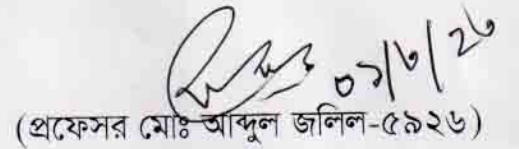 ০১/৬/২৬
(প্রফেসর মোঃ আব্দুল জলিল-৫৯২৬)